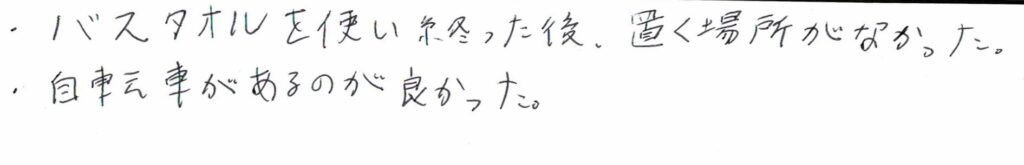 ・バスタオルを使い終った後、置く場所がなかった。
・自転車があるのが良かった。